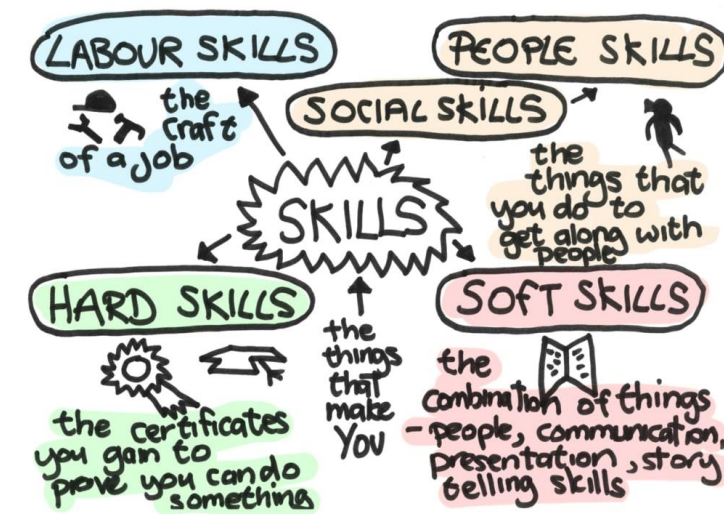 LABOUR SKILLS
the
craft
of a job
PEOPLE SKILLS
SOCIAL SKILLS
the
things that
you do to
get along with
people
SKILLS
HARD SKILLS
the certificates
you gain to
prove you can do
something
the
things
that
make
You
SOFT SKILLS
the
combination of things
- people, communication,
presentation, story
telling skills